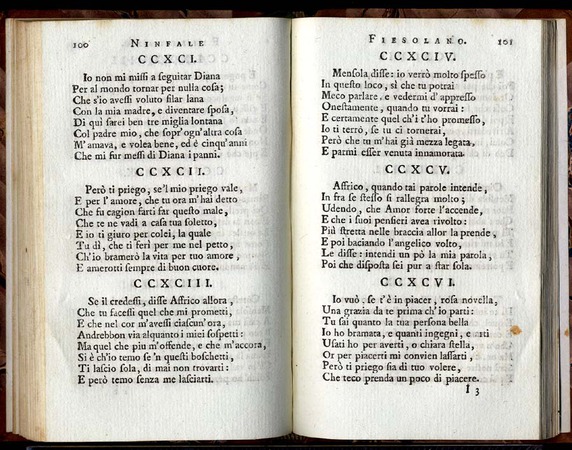 100 NINFALE
CCXCI.
Io non mi missi a seguitar Diana
Per al mondo tornar per nulla cosa;
Che s'io avessi voluto filar lana
Con la mia madre, e diventare sposa,
Di quì sarei ben tre miglia lontana
Col padre mio, che sopr'ogn'altra cosa
M'amava, e volea bene, ed è cinqu'anni
Che mi fur messi di Diana i panni.
CCXCII.
Però ti priego, se'l mio priego vale,
E per l'amore, che tu ora m'hai detto
Che fu cagion farti far questo male,
Che te ne vadi a casa tua soletto,
E io ti giuro per colei, la quale
Tu dì, che ti ferì per me nel petto,
Ch'io bramerò la vita per tuo amore,
E amerotti sempre di buon cuore.
CCXCIII.
Se il credessi, disse Affrico allora,
Che tu facessi quel che mi prometti,
E che nel cor m'avessi ciascun'ora,
Andrebbon via alquanto i miei sospetti:
Ma quel che piu m'offende, e che m'accora,
Si è ch'io temo se 'n questi boschetti,
Ti lascio sola, di mai non trovarti:
E però temo senza me lasciarti.
FIESOLANO. 101
CCXCIV.
Mensola disse: io verrò molto spesso
In questo loco, sì che tu potrai
Meco parlare, e vedermi d'appresso
Onestamente, quando tu vorrai:
E certamente quel ch'i t'ho promesso,
Io ti terrò, se tu ci tornerai,
Però che tu m'hai già mezza legata,
E parmi esser venuta innamorata.
CCXCV.
Affrico, quando tai parole intende,
In fra se stesso si rallegra molto;
Udendo, che Amor forte l'accende,
E che i suoi pensieri avea rivolto:
Più stretta nelle braccia allor la prende,
E poi baciando l'angelico volto,
Le disse: intendi un pò la mia parola,
Poi che disposta sei pur a star sola.
CCXCVI.
Io vuò, se t'è in piacer, rosa novella,
Una grazia da te prima ch'io parti:
Tu sai quanto la tua persona bella
Io ho bramata, e quanti ingegni, e arti
Usati ho per averti, o chiara stella,
Or per piacerti mi convien lassarti,
Però ti priego sia di tuo volere,
Che teco prenda un poco di piacere.
I 3